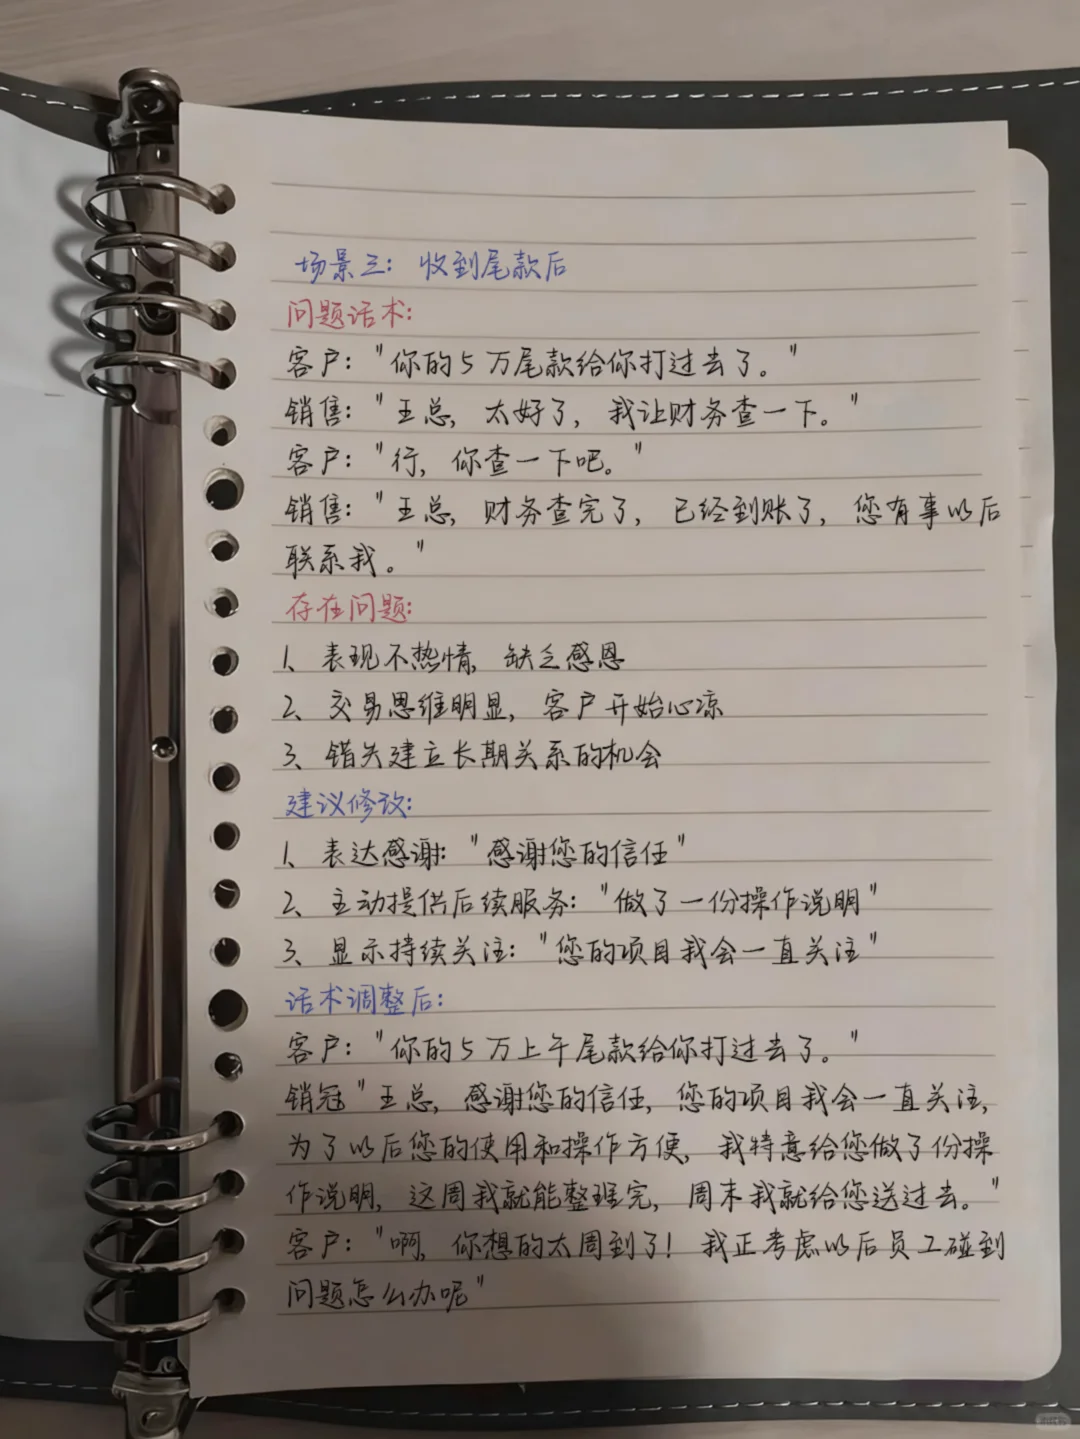 场景三：收到尾款后
问题话术：
客户："你的5万尾款给你打过去了。"
销售："王总，太好了，我让财务查一下。"
客户："行，你查一下吧。"
销售："王总，财务查完了，已经到账了，您有事以后
联系我。"
存在问题：
1、表现不热情，缺乏感恩
2、交易思维明显，客户开始心凉
3、错失建立长期关系的机会
建议修改：
1、表达感谢："感谢您的信任"
2、主动提供后续服务："做了一份操作说明"
3、显示持续关注："您的项目我会一直关注"
话术调整后：
客户："你的5万上午尾款给你打过去了。"
销冠"王总，感谢您的信任，您的项目我会一直关注，
为了以后您的使用和操作方便，我特意给您做了份操
作说明，这周我就能整理完，周末我就给您送过去。"
客户："啊，你想的太周到了！我正考虑以后员工碰到
问题怎么办呢"